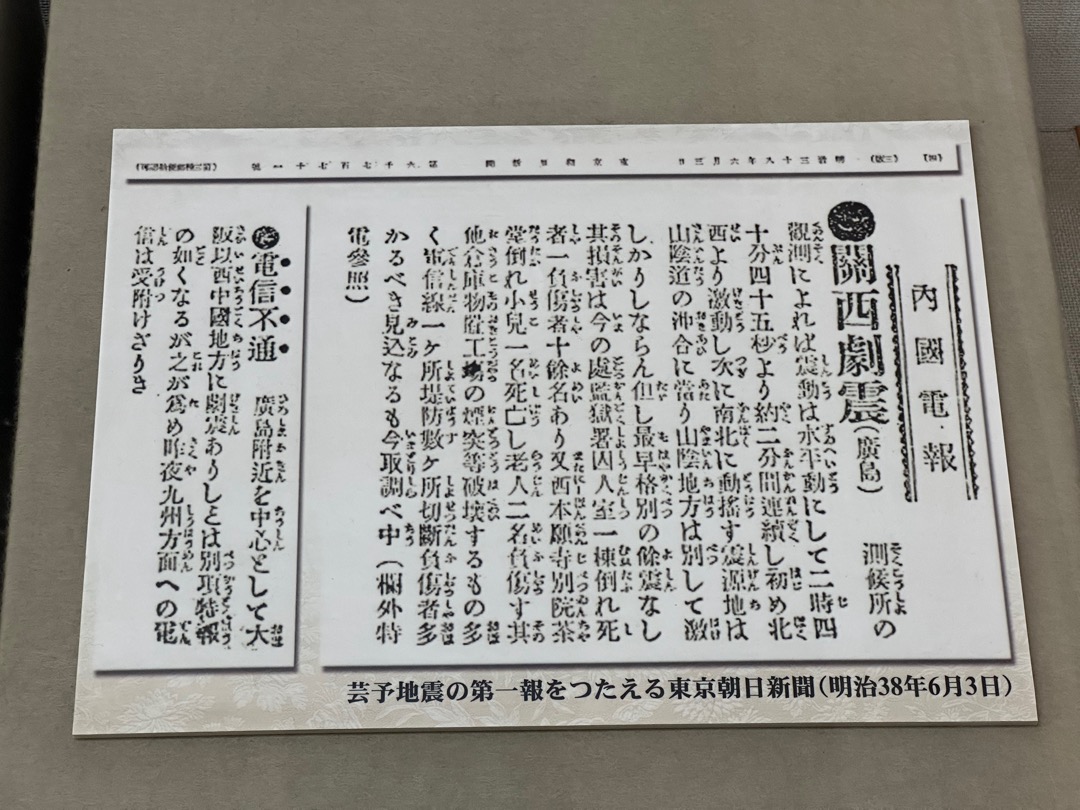 【四】 (三版) 明治三十八年六月三日 東京朝日新聞 第六千七百七十一號 (第三種郵便物認可)
內國電報
●關西劇震(廣島) 測候所の
觀測によれば震動は水平動にして二時四
十分四十五秒より約二分間連續し初め北
西より激動し次に南北に動搖す震源地は
山陰道の沖合に當り山陰地方は別して激
しかりしならん但し最早格別の餘震なし
其損害は今の處監獄署囚人室一棟倒れ死
者一負傷者十餘名あり又西本願寺別院茶
堂倒れ小兒一名死亡し老人二名負傷す其
他倉庫物置工場の煙突等破壞するもの多
く電信線一ケ所堤防數ケ所切斷負傷者多
かるべき見込なるも今取調べ中(欄外特
電參照)
電信不通 廣島附近を中心として大
阪以西中國地方に劇震ありしとは別項特報
の如くなるが之が爲め昨夜九州方面への電
信は受附けざりき
芸予地震の第一報をつたえる東京朝日新聞(明治38年6月3日)